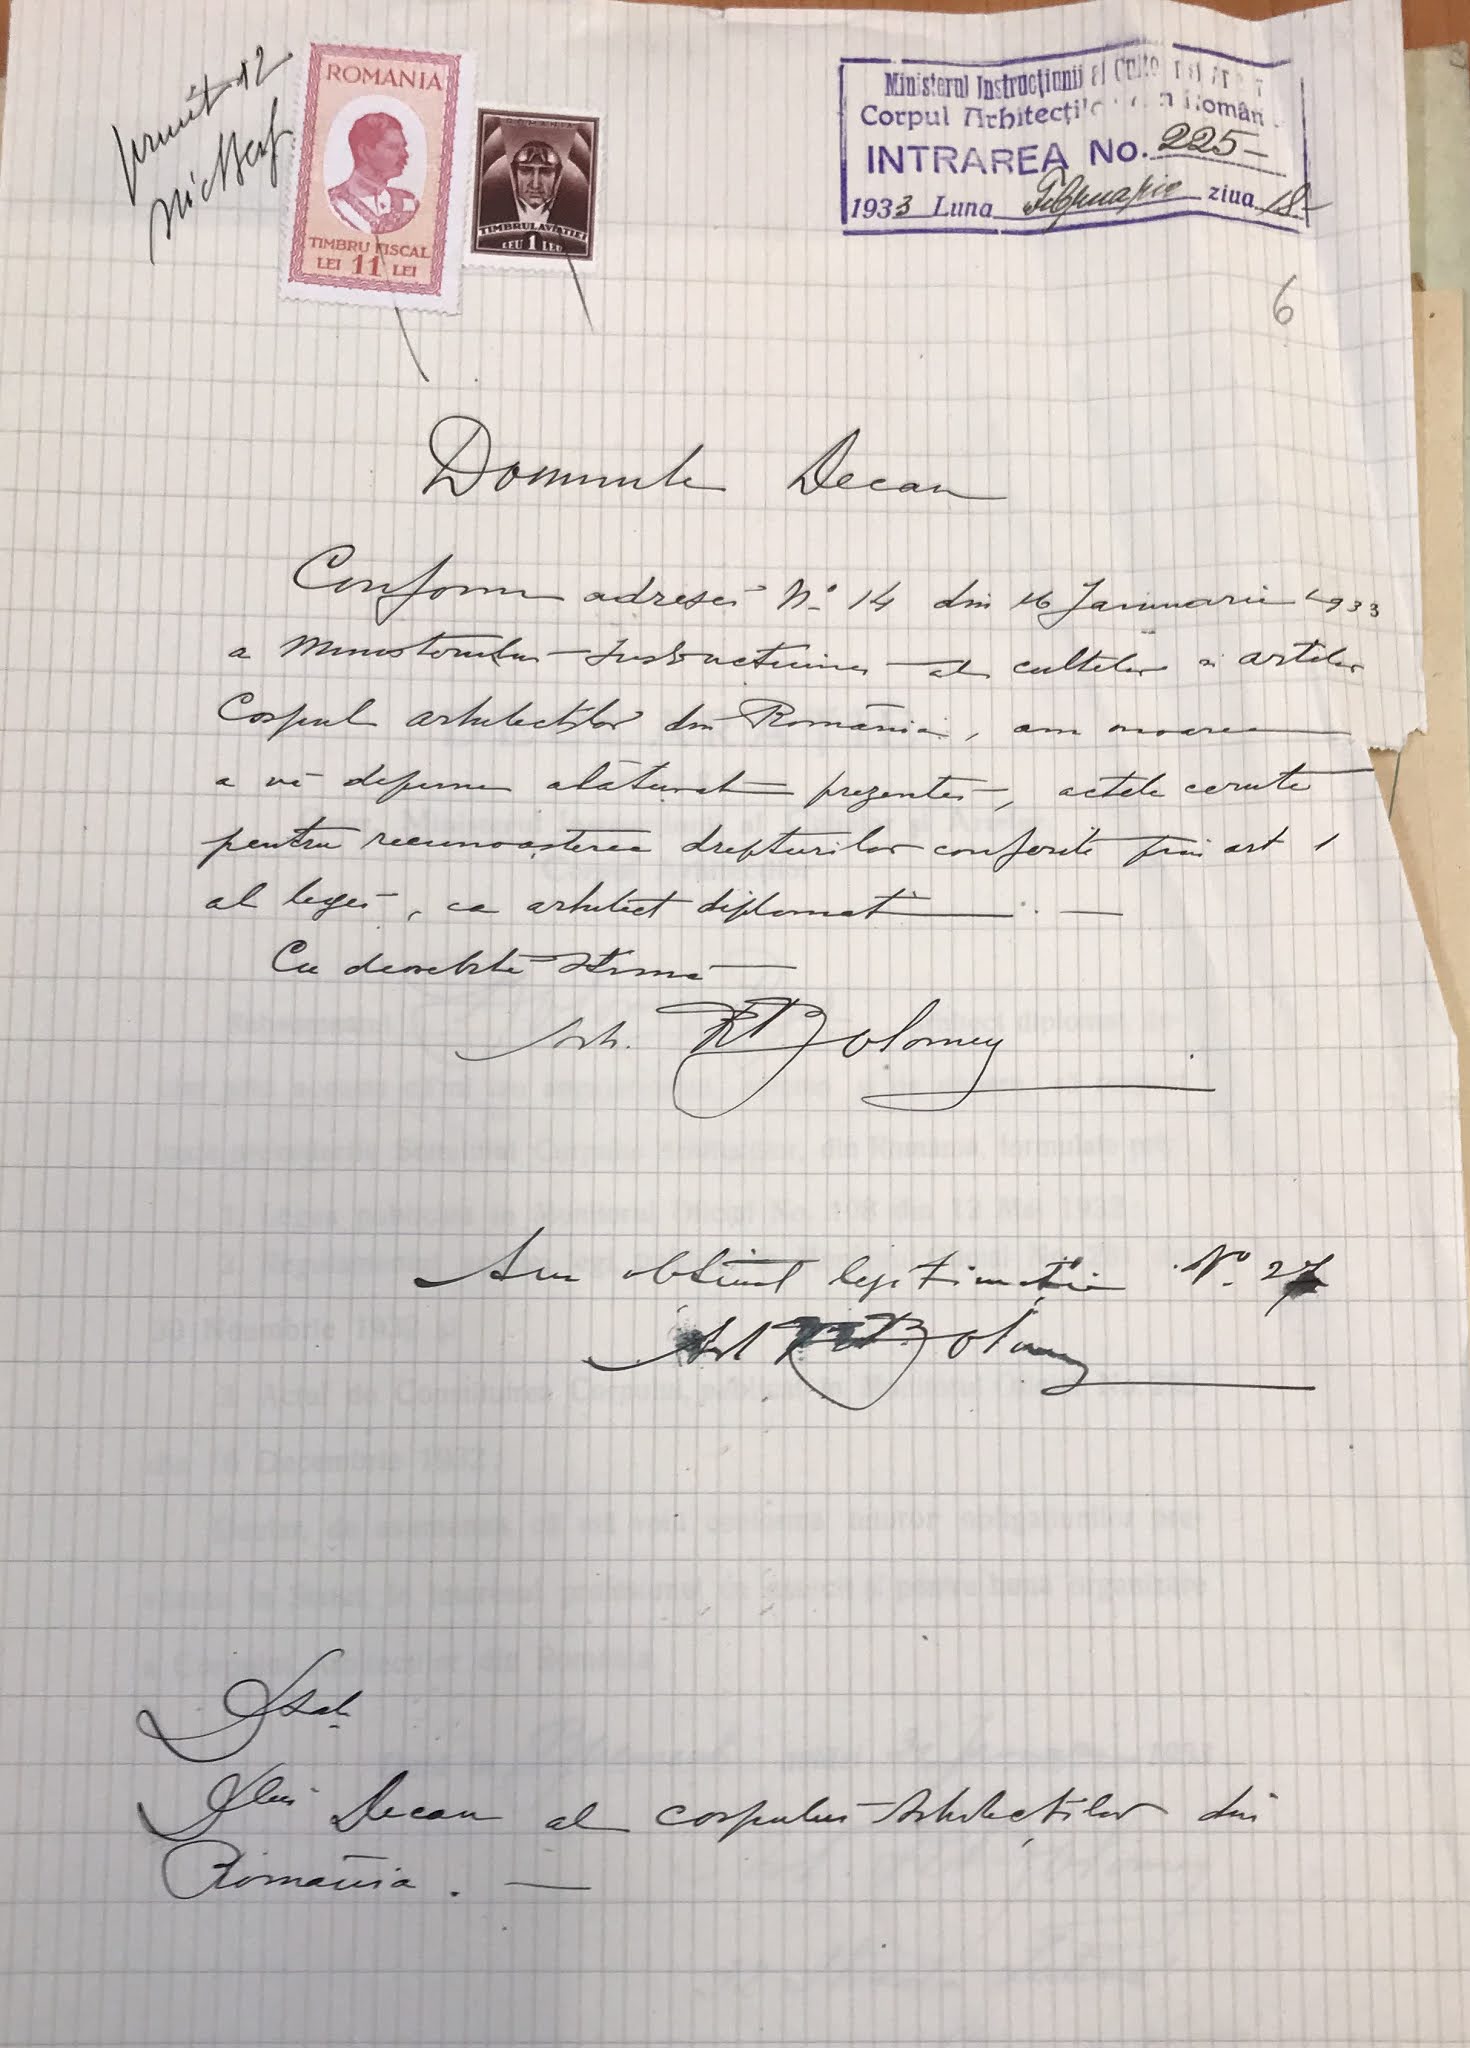 ROMANIA
TIMBRU FISCAL
LEI 11 LEI
ROMANIA
TIMBRUL AVIAȚIEI
LEU 1 LEU
Ministerul Instrucțiunii al
Corpul Arhitecților din Român
INTRAREA No. 225
1933 Luna Februarie ziua 18
6
Domnule Decan
Conform adresei No 14 din 16 Januarie 1933
a Ministerului Instructiunei al cultelor si artelor
Corpul arhitecților din România, am onoarea
a vă depune alăturat prezentei, actele cerute
pentru recunoașterea drepturilor conferite prin art 1
al legei, ca arhitect diplomat.
Cu deosebită stimă
Arh. Bolomey
Am obținut legitimația No. 27
Arh Bolomey
Dsale
Dlui Decan al corpului Arhitecților din
România.